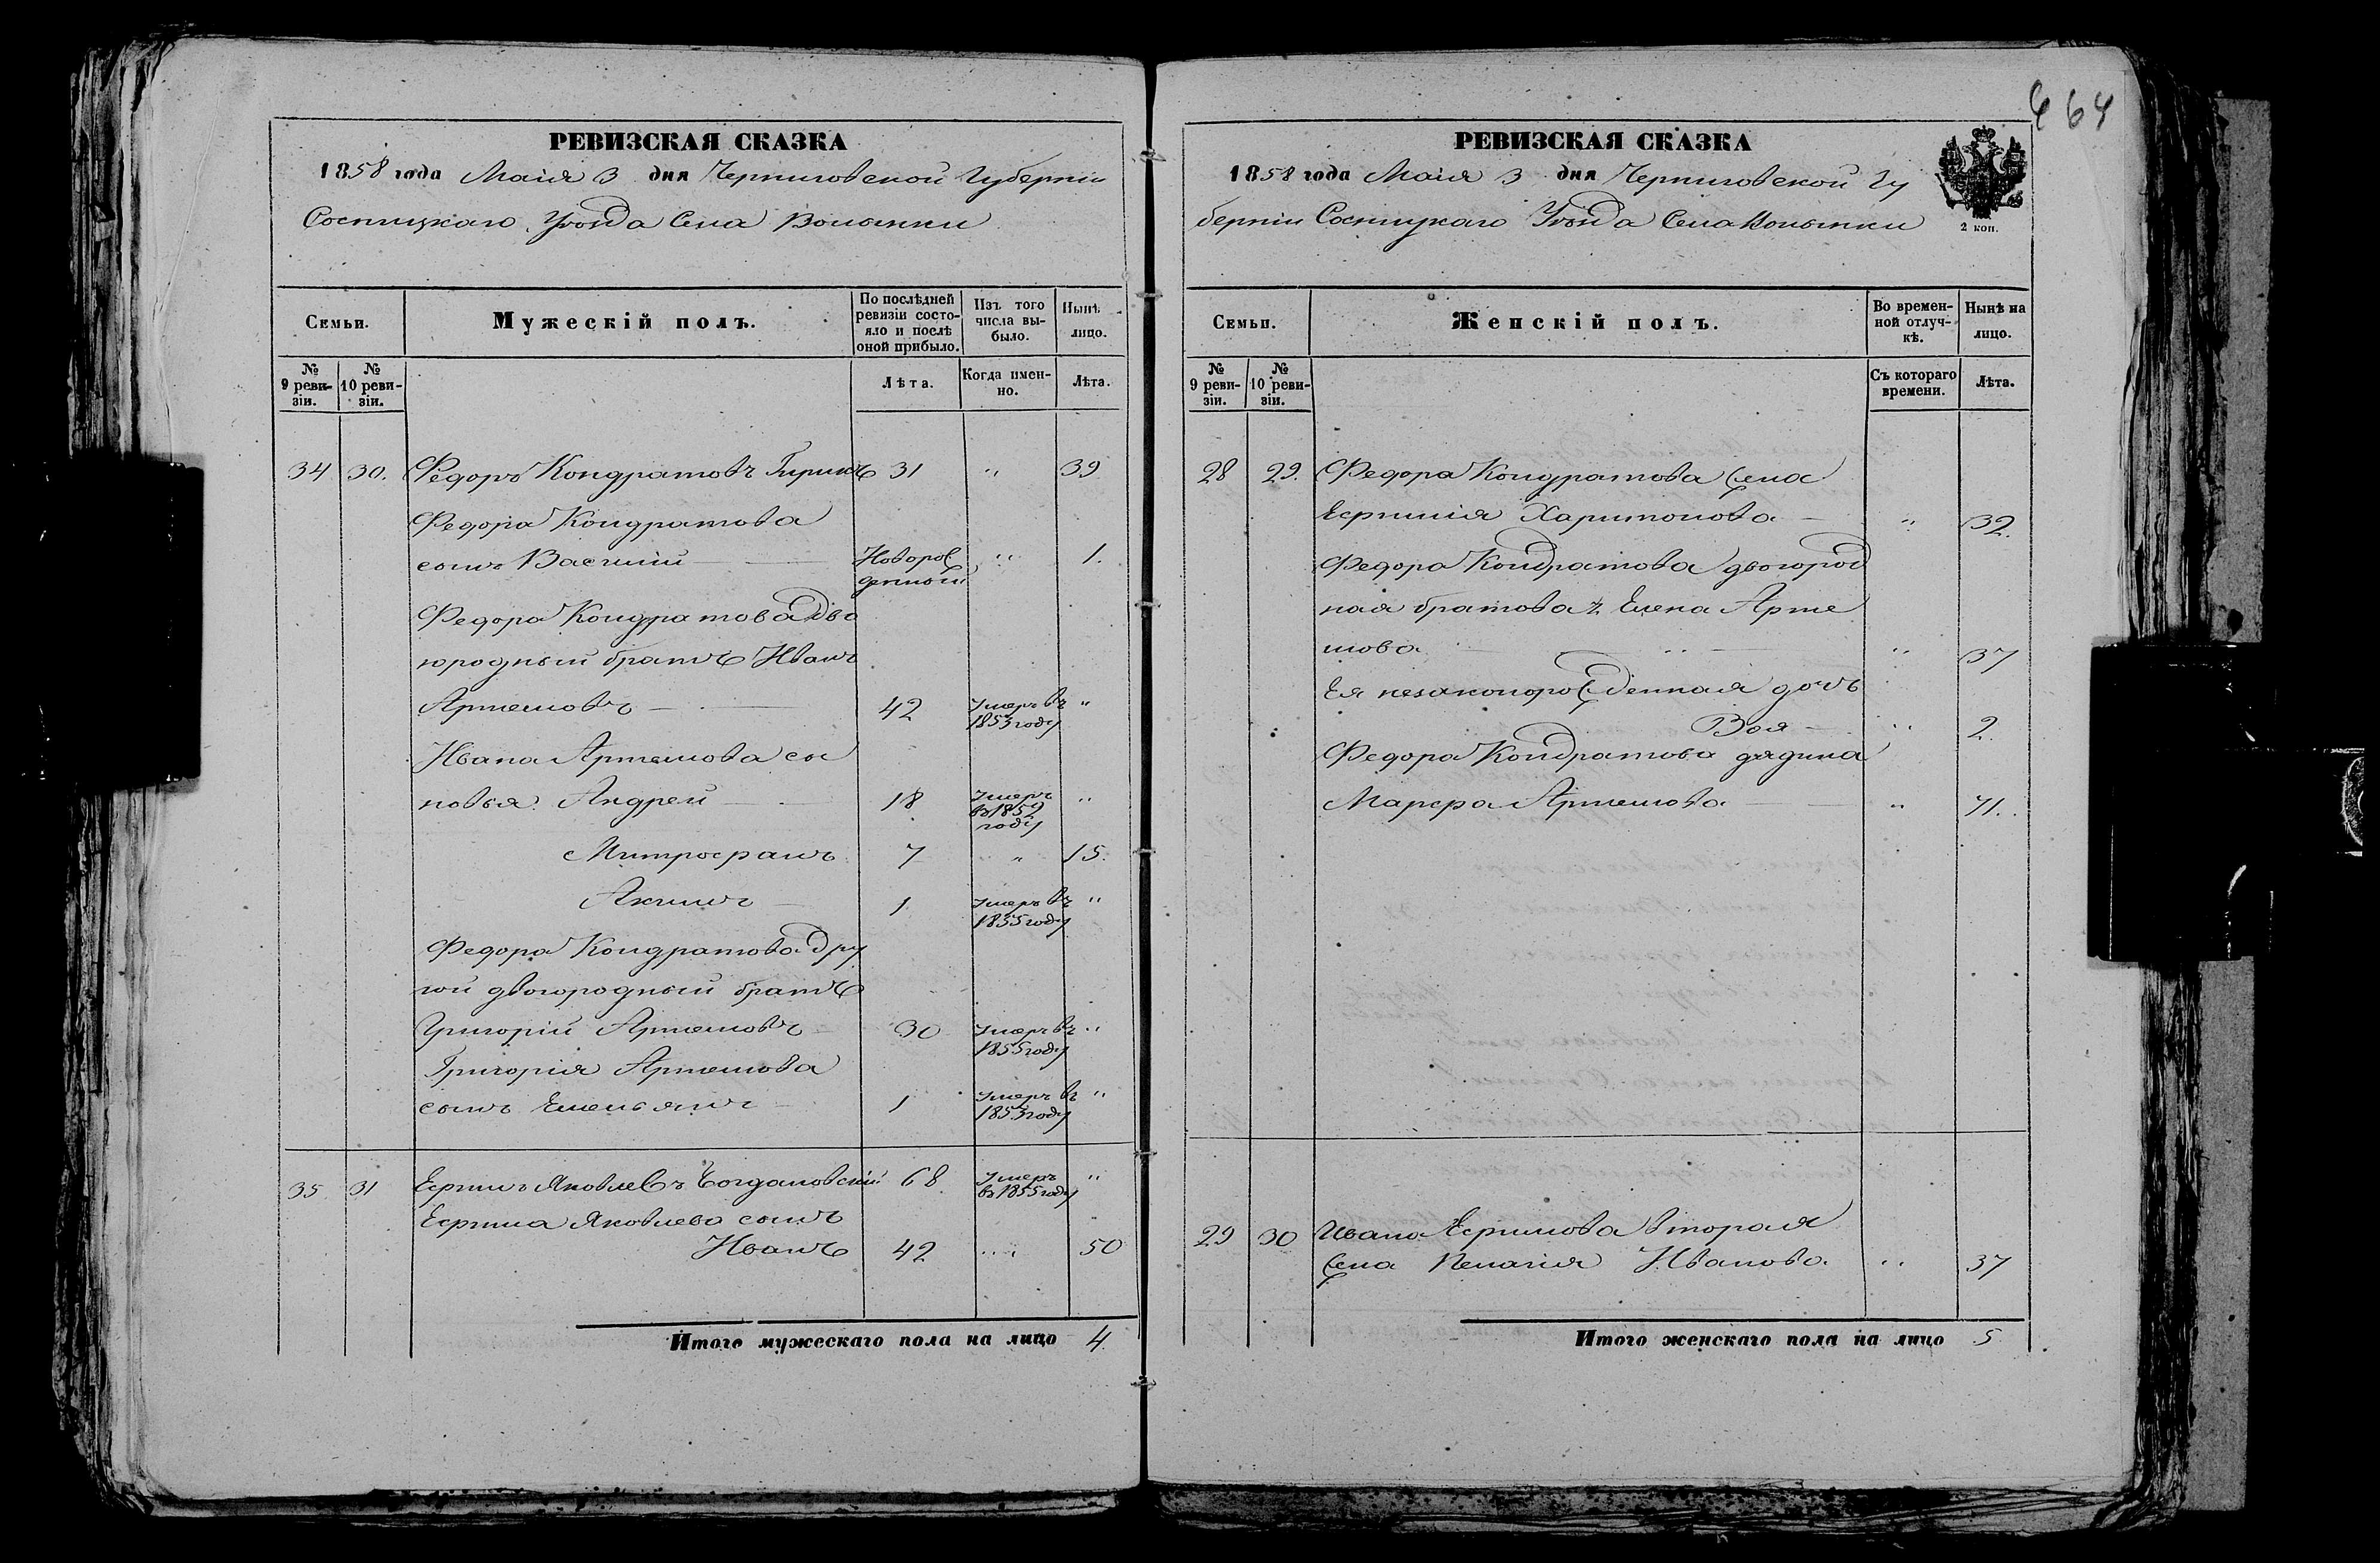 464
РЕВИЗСКАЯ СКАЗКА
1858 года Маія 3 дня Черниговской Губерніи
Сосницкаго Уѣзда Села Волынки
Семьи.
Мужескій полъ.
По послѣдней ревизіи состояло и послѣ оной прибыло.
Изъ того числа выбыло.
Нынѣ лицо.
№ 9 ревизіи.
№ 10 ревизіи.
Лѣта.
Когда именно.
Лѣта.
34 30. Федоръ Кондратовъ 31 " 39
Федора Кондратова
сынъ Василій Новорож " 1.
денный
Федора Кондратова дво
юродный братъ Иванъ
Артемовъ 42 Умеръ въ 1853 году "
Ивана Артемова сы
новья Андрей 18 Умеръ въ 1852 году "
Митрофанъ 7 " 15.
Акимъ 1 Умеръ въ 1855 году "
Федора Кондратова дру
гой двоюродный братъ
Григорій Артемовъ 30 Умеръ въ 1855 году "
Григорія Артемова
сынъ Емельянъ 1 Умеръ въ 1853 году "
35 31 Ефимъ Яковлевъ Богдановскій 68 Умеръ въ 1855 году "
Ефима Яковлева сынъ
Иванъ 42 " 50
Итого мужескаго пола на лицо 4
РЕВИЗСКАЯ СКАЗКА
1858 года Маія 3 дня Черниговской Гу
берніи Сосницкаго Уѣзда Села Волынки
2 коп.
Семьи.
Женскій полъ.
Во временной отлучкѣ.
Нынѣ на лицо.
№ 9 ревизіи.
№ 10 ревизіи.
Съ котораго времени.
Лѣта.
28 29. Федора Кондратова жена
Ефимія Харитонова " 32.
Федора Кондратова двоюрод
ная братова Елена Арте
мова " 37
Ея незаконорожденная дочь
" 2.
Федора Кондратова дядина
Марфа Артемова " 71.
29 30 Ивана Ефимова вторая
жена Пелагія Иванова " 37
Итого женскаго пола на лицо 5